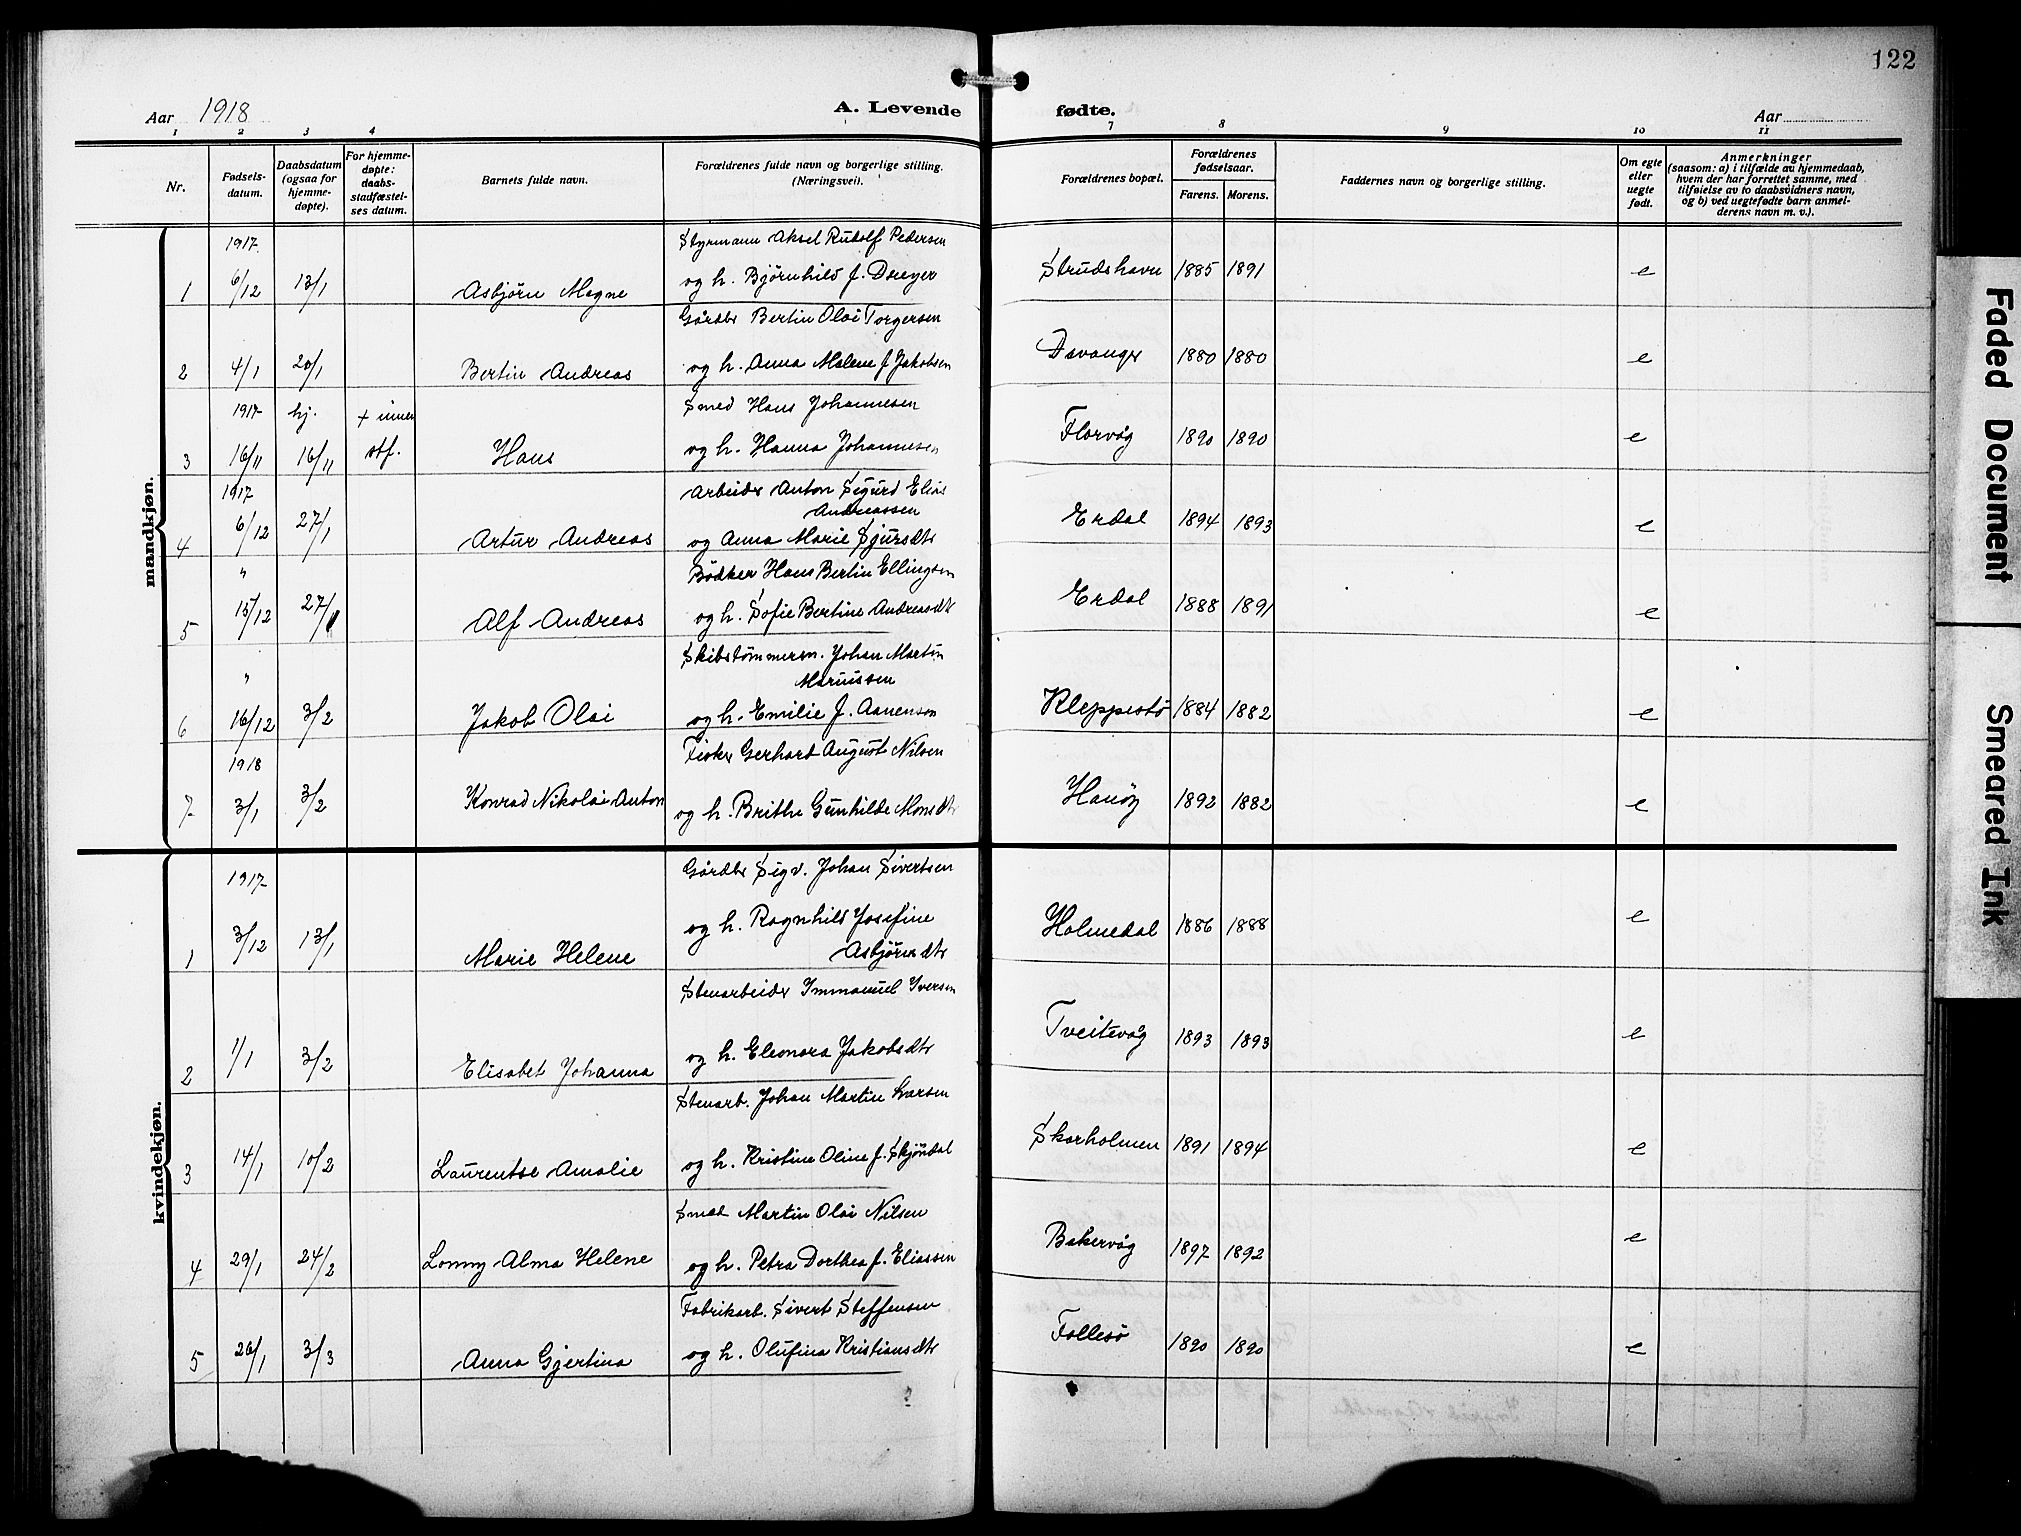 122
Aar 1918
A. Levende fødte.
Aar
1 2 3 4 7 8 9 10 11
Nr.
Fødsels-
datum.
Daabsdatum
(ogsaa for
hjemme-
døpte).
For hjemme-
døpte:
daabs-
stadfæstel-
ses datum.
Barnets fulde navn.
Forældrenes fulde navn og borgerlige stilling.
(Næringsvei).
Forældrenes bopæl.
Forældrenes
fødselsaar.
Farens. Morens.
Faddernes navn og borgerlige stilling.
Om egte
eller
uegte
født.
Anmerkninger
(saasom: a) i tilfælde av hjemmedaab,
hvem der har forrettet samme, med
tilføielse av to daabsvidners navn,
og b) ved uegtefødte barn anmel-
derens navn m. v.).
mandkjøn.
1917 Styrmann Aksel Rudolf Pedersen
1 6/12 13/1 Asbjørn Magne og h. Bjørnhild f. Dreyer Strudshavn 1885 1891 e
Gårdbr Bertin Olai Torgersen
2 4/1 20/1 Bertin Andreas og h. Anna Malene f. Jakobsen Davanger 1880 1880 e
1917 hj. + innen Smed Hans Johannesen
3 16/11 16/11 stf. Hans og h. Hanna Johannesen Florvåg 1890 1890 e
1917 Arbeider Anton Sigurd Elias
Andreassen
4 6/12 27/1 Artur Andreas og Anna Marie Sjursdtr Erdal 1894 1893 e
" Bödker Hans Bertin Ellingsen
5 15/12 27/1 Alf Andreas og h. Sofie Bertine Andreasdtr Erdal 1888 1891 e
" Skibstömmerm. Johan Martin
Mariussen
6 16/12 3/2 Jakob Olai og h. Emilie f. Aanensen Kleppestö 1884 1882 e
1918 Fisker Gerhard August Nilsen
7 3/1 3/2 Konrad Nikolai Anton og h. Brithe Gunhilde Monsdtr Hanöy 1892 1882 e
kvindekjøn.
1917 Gårdbr Sigv. Johan Sivertsen
1 3/12 13/1 Marie Helene og h. Ragnhild Josefine Holmedal 1886 1888 e
Asbjörnsdtr
Stenarbeider Immanuel Iversen
2 1/1 3/2 Elisabet Johanna og h. Eleonora Jakobsdtr Tveitevåg 1893 1893 e
Stenarb. Johan Martin Larsen
3 14/1 10/2 Laurentse Amalie og h. Kristine Oline f. Skjöndal Skarholmen 1891 1894 e
Smed Martin Olai Nilsen
4 29/1 24/2 Lonny Alma Helene og h. Petra Dorthea f. Eliassen Bakarvåg 1897 1892 e
Fabrikarb. Sivert Steffensen
5 26/1 3/3 Anna Gjertina og h. Olufina Kristiansdtr Follesö 1890 1890 e
Faded Document
Smeared Ink